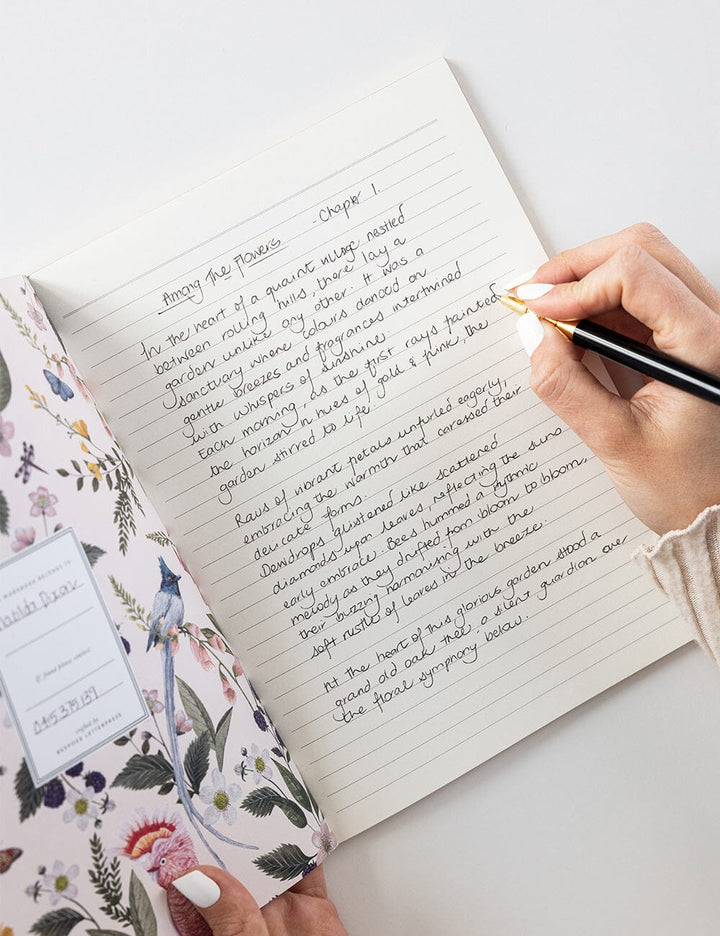 Among The Flowers - Chapter 1.
In the heart of a quaint village nestled
between rolling hills, there lay a
garden unlike any other. It was a
sanctuary where colours danced on
gentle breezes and fragrances intertwined
with whispers of sunshine.
Each morning, as the first rays painted
the horizon in hues of gold & pink, the
garden stirred to life.
Rows of vibrant petals unfurled eagerly,
embracing the warmth that caressed their
delicate forms.
Dewdrops glistened like scattered
diamonds upon leaves, reflecting the suns
early embrace. Bees hummed a rythmic
melody as they drifted from bloom to bloom,
their buzzing harmonising with the
soft rustle of leaves in the breeze.
At the heart of this glorious garden stood a
grand old oak tree, a silent guardian over
the floral symphony below.
NOTEBOOK BELONGS TO
If found please contact
0415 375 139
crafted by
BESPOKE LETTERPRESS